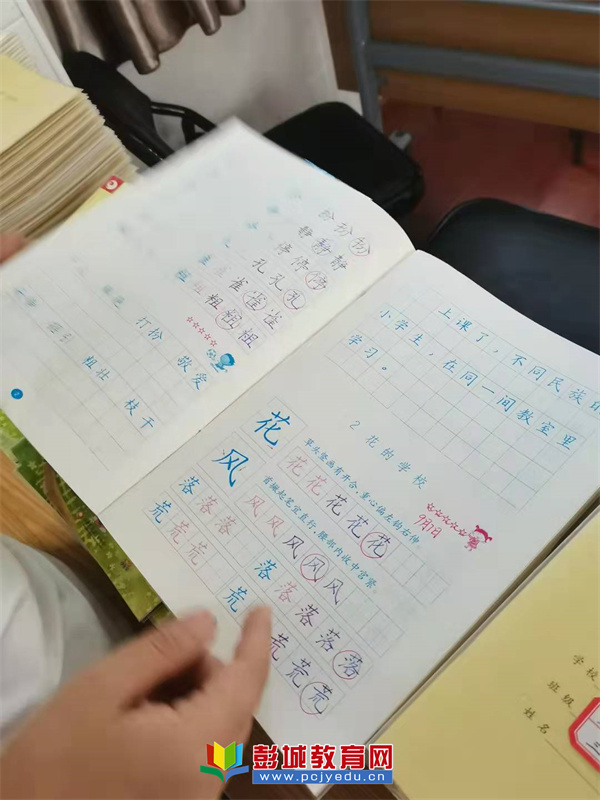 纷 纷 纷
静 静 静
停 停 停
孔 孔 孔
雀 雀 雀
粗 粗 粗
打扮 敬爱
粗壮 枝干
上课了，不同民族的
小学生，在同一间教室里
学习。
2 花的学校
花 花 花 花 花 花
草头竖画有开合，重心偏左钩右伸
9月1日
风 风 风 风 风 风
首撇起笔宜直行，腰部内收中宫紧
落 落 落 落 落 落 落
荒 荒 荒 荒 荒 荒 荒
学校
班级
姓名
彭城教育网
www.pcjyedu.cn